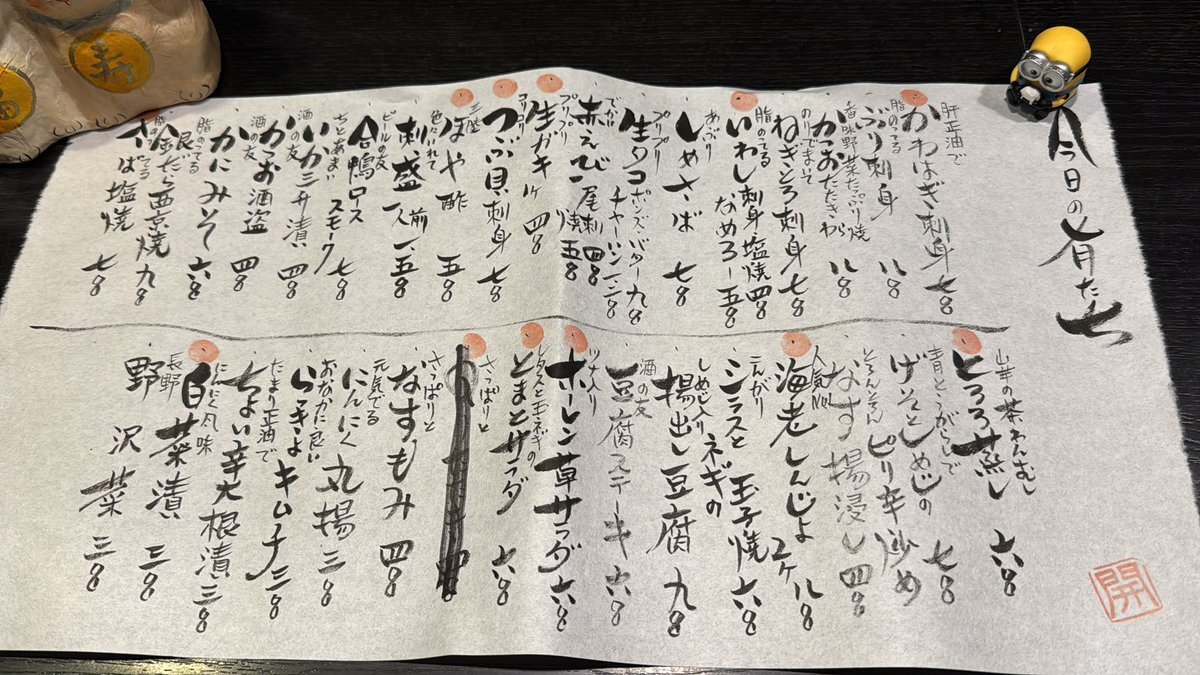 今日の肴たち
肝正油で
かわはぎ刺身 七〇〇
脂のってる
ぶり刺身 八〇〇
香味野菜たっぷり
かつおたたき
八〇〇
のりでまいて
ねぎとろ刺身 七〇〇
脂のってる
いわし刺身 塩焼 四〇〇
なめろー 五〇〇
あぶり
しめさば 七〇〇
プリプリ
生タコ ポンズ・バター 九〇〇
チャーハン
でかい
赤えび 一尾 刺 四〇〇
焼 五〇〇
プリプリ
生ガキ 1ヶ 四〇〇
コリコリ
つぶ貝刺身 七〇〇
三陸
ほや酢 五〇〇
色々入れて
刺盛一人前 一、五〇〇
ビールの友
合鴨ロース スモーク 七〇〇
ちとあまい
いか三升漬 四〇〇
酒の友
かつお酒盗 四〇〇
酒の友
かにみそ 六〇〇
脂のってる
銀だら西京焼 九〇〇
さば塩焼 七〇〇
山芋の茶わんむし
とろろ蒸し 六〇〇
青とうがらしで
げそとしめじの
ピリ辛炒め 七〇〇
とろんとろん
なす揚浸し 四〇〇
人気No1
海老しんじょ 2ヶ 八〇〇
こんがり
シラスとネギの
玉子焼 六〇〇
しめじ入り
揚出し豆腐 九〇〇
酒の友
豆腐ステーキ 六〇〇
ツナ入り
ホーレン草サラダ 六〇〇
レタスと玉ネギの
とまとサラダ 六〇〇
さっぱりと
さっぱりと
なすもみ 四〇〇
元気でる
にんにく丸揚 三〇〇
おなかに良い
らっきょキムチ 三〇〇
たまり正油で
ちょい辛大根漬 三〇〇
にんにく風味
白菜漬 三〇〇
長野
野沢菜 三〇〇
開
寿